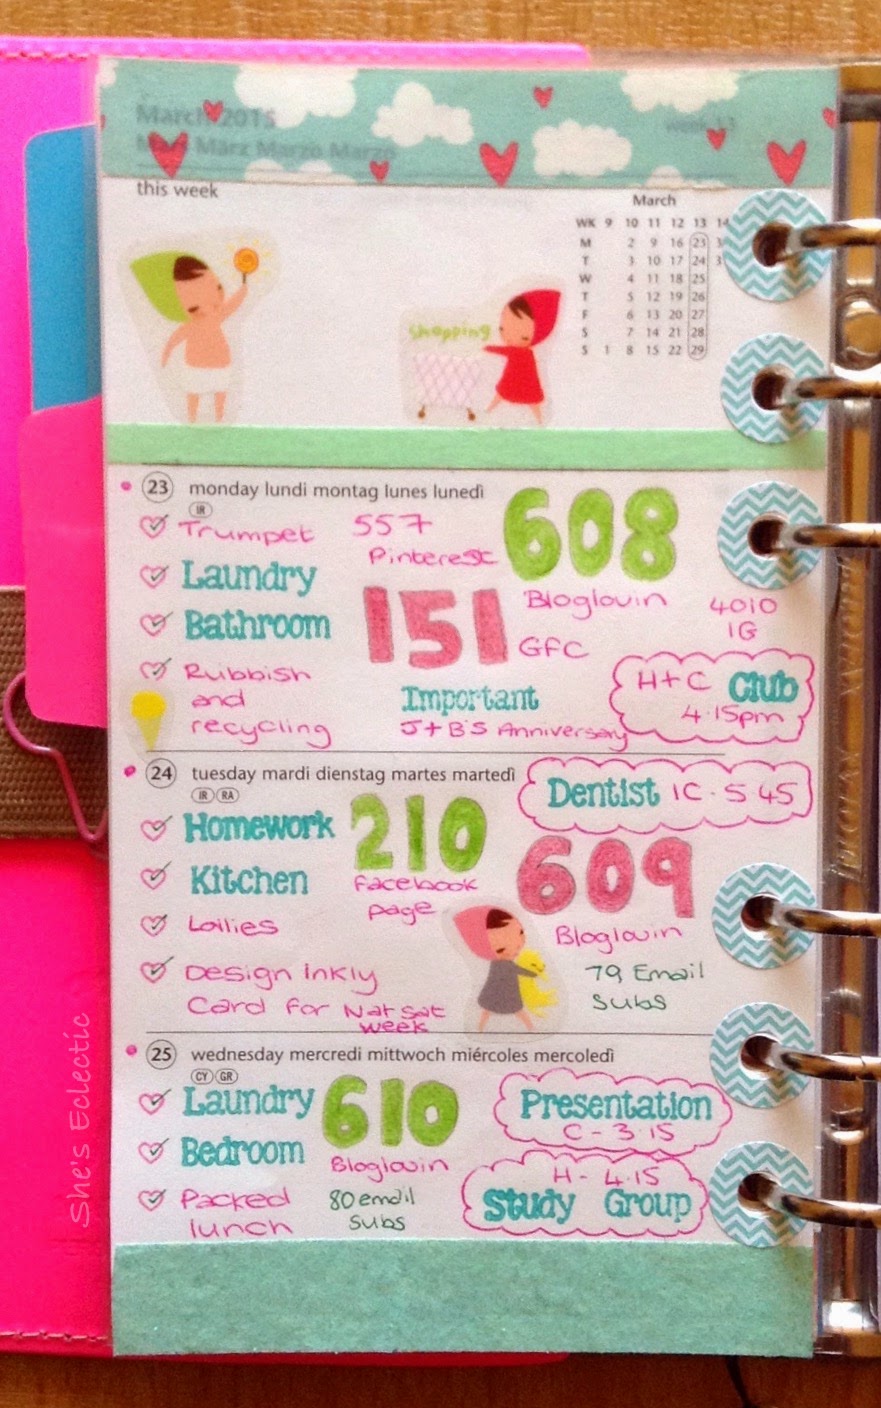 March 2015
Mars März Marzo Marzo
this week
March
WK 9 10 11 12 13 14
M 2 9 16 23 3
T 3 10 17 24 3
W 4 11 18 25
T 5 12 19 26
F 6 13 20 27
S 7 14 21 28
S 1 8 15 22 29
shopping
23 monday lundi montag lunes lunedì
IR
Trumpet
557
Pinterest
608
Bloglovin
4010
IG
Laundry
Bathroom
151
GFC
Rubbish
and
recycling
Important
J+B's Anniversary
H+C Club
4.15pm
24 tuesday mardi dienstag martes martedì
IR RA
Dentist 1C. 5 45
Homework
210
Facebook
page
609
Bloglovin
Kitchen
Lollies
79 Email
Subs
Design Inkly
Card for Nat Sat
week
25 wednesday mercredi mittwoch miércoles mercoledì
CY GR
Laundry
610
Bloglovin
Presentation
C - 3.15
Bedroom
H - 4.15
Study Group
Packed
lunch
80 email
subs
She's Eclectic